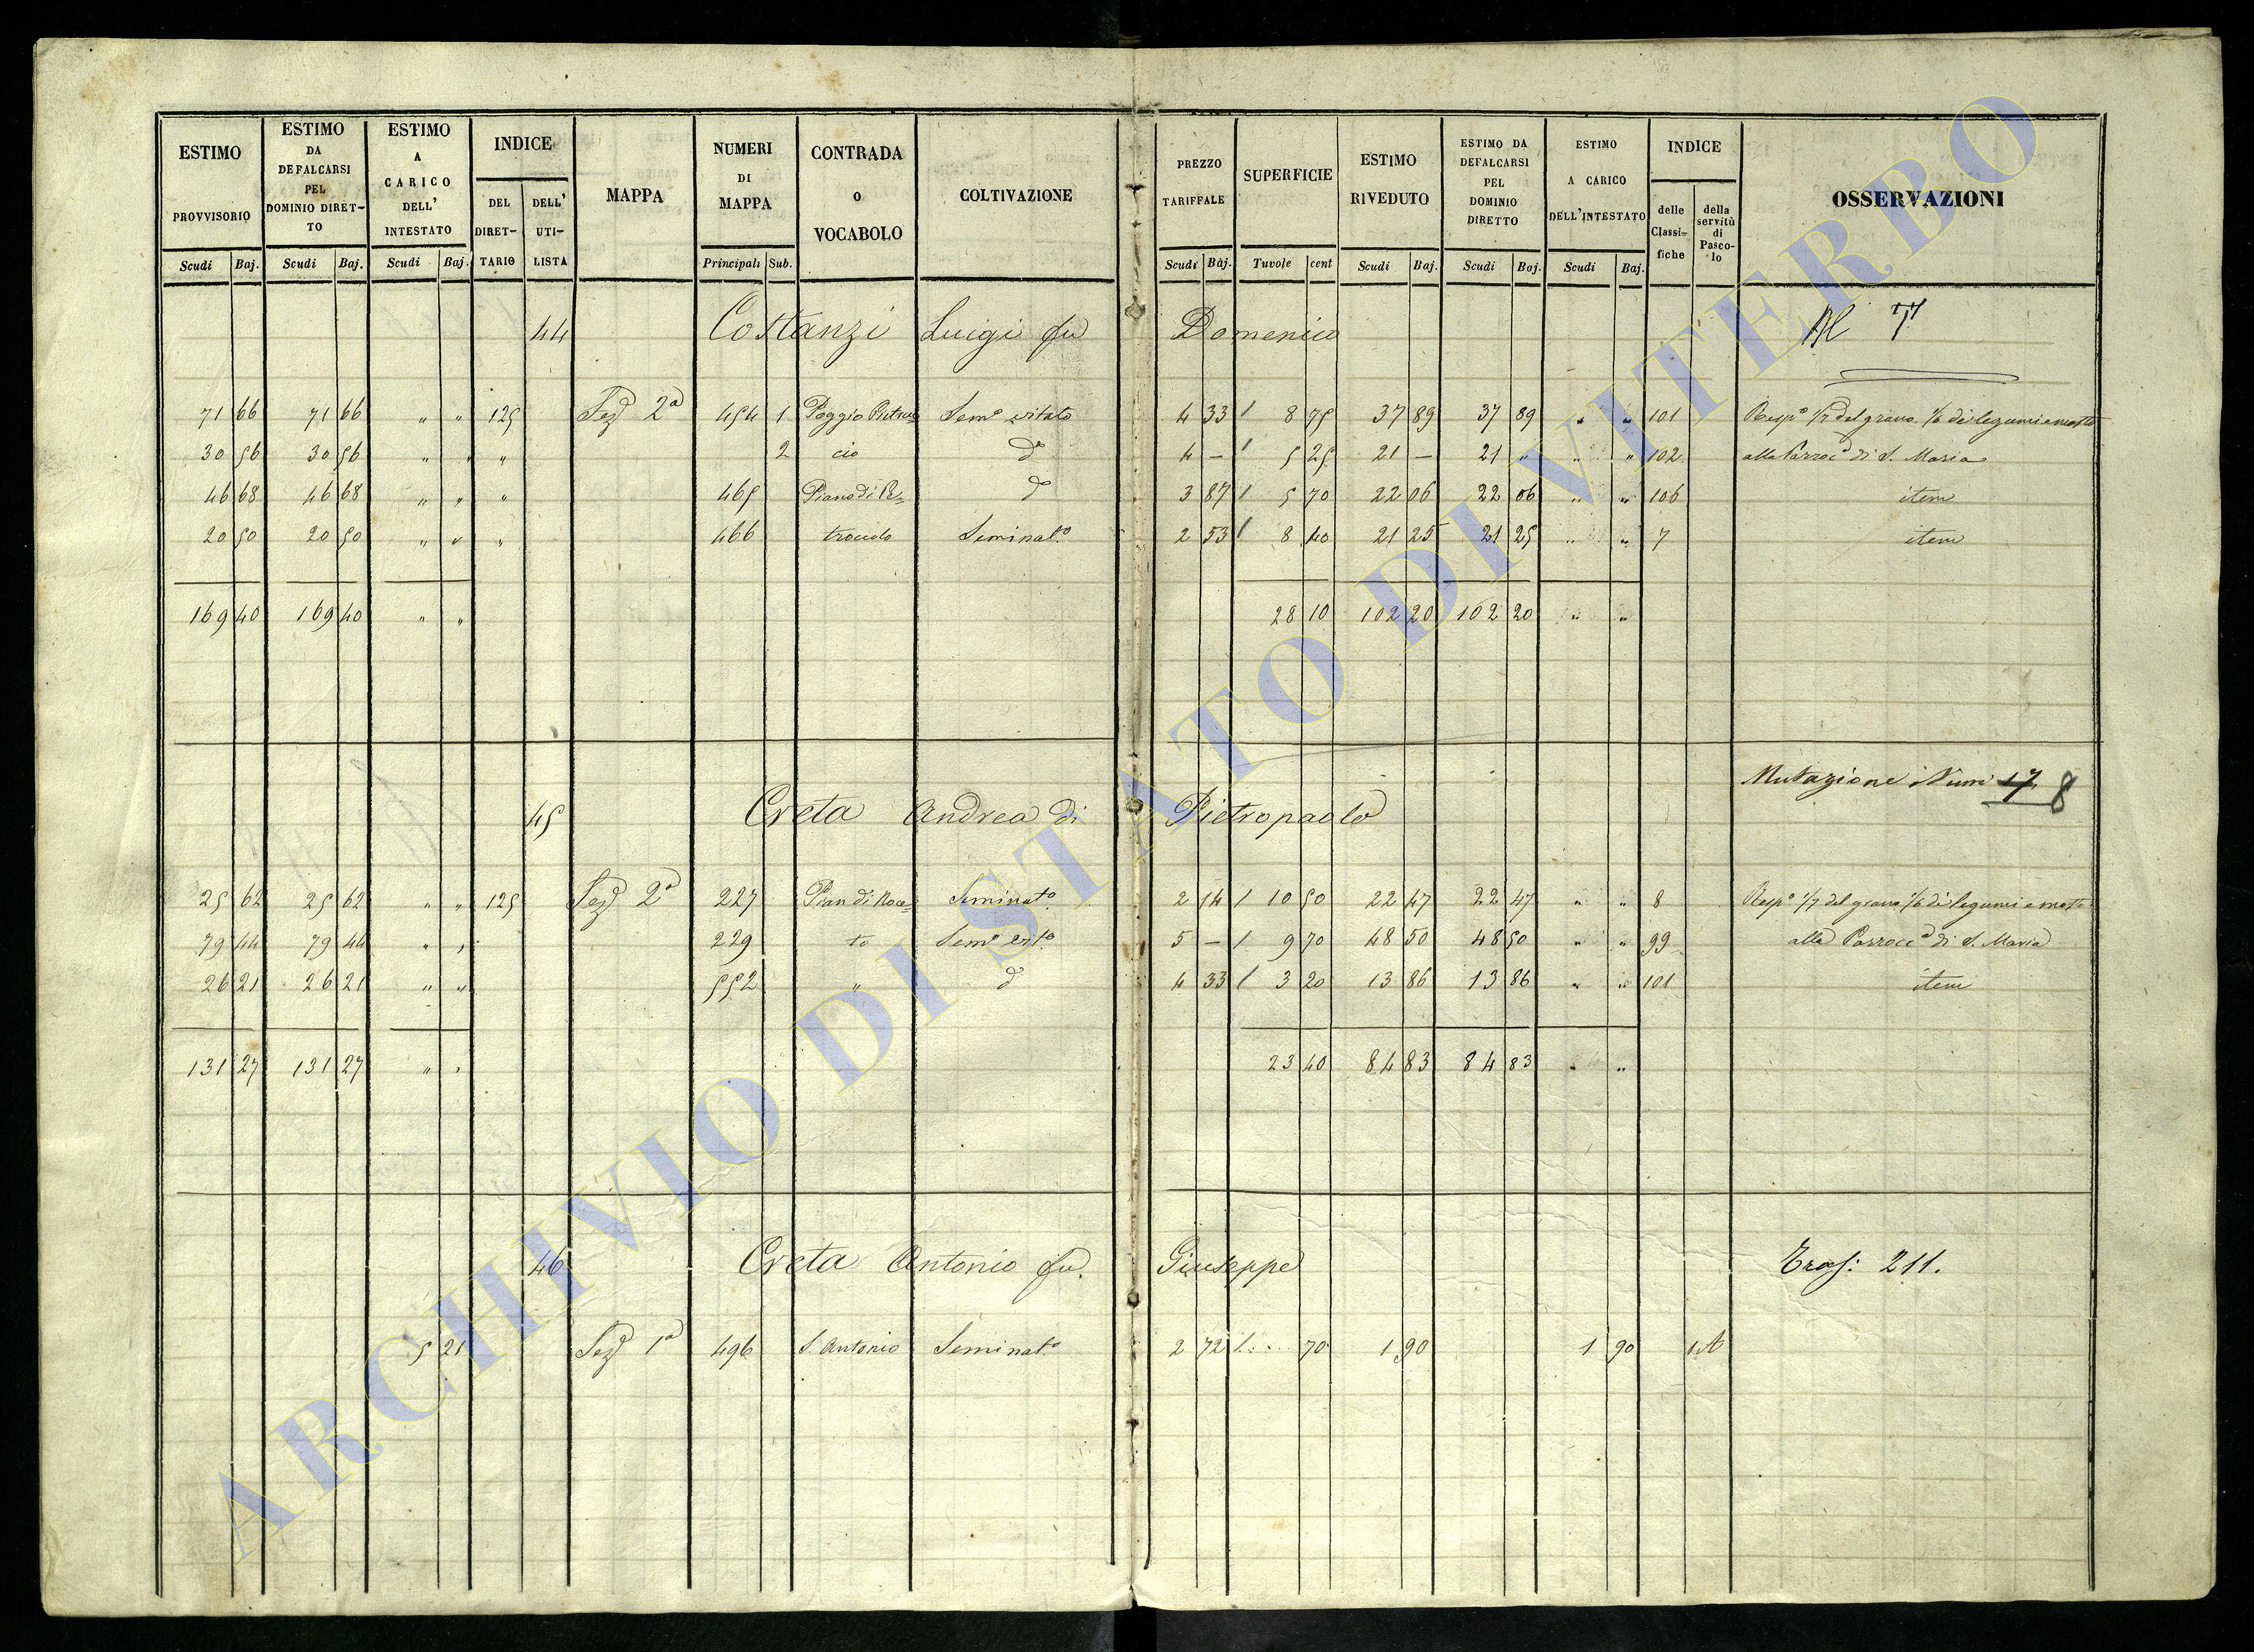 ESTIMO PROVVISORIO Scudi Baj.
ESTIMO DA DEFALCARSI PEL DOMINIO DIRET-TO Scudi Baj.
ESTIMO A CARICO DELL' INTESTATO Scudi Baj.
INDICE DEL DIRET-TARIO DELL' UTI-LISTA
MAPPA
NUMERI DI MAPPA Principali Sub.
CONTRADA o VOCABOLO
COLTIVAZIONE
PREZZO TARIFFALE Scudi Baj.
SUPERFICIE Tavole cent
ESTIMO RIVEDUTO Scudi Baj.
ESTIMO DA DEFALCARSI PEL DOMINIO DIRETTO Scudi Baj.
ESTIMO A CARICO DELL'INTESTATO Scudi Baj.
INDICE delle Classi-fiche della servitù di Pasco-lo
OSSERVAZIONI
44 Costanzi Luigi fu Domenico Al 77
71 66 71 66 " " 125 Sezᵉ 2ᵃ 454 1 Poggio Pietruc= Semᵒ vitato 4 33 1 8 75 37 89 37 89 " " 101 Respᵒ 1/7 del grano 1/6 di legumi e mosto
30 56 30 56 " " " 2 cio dᵒ 4 — 1 5 25 21 — 21 " " " 102 alla Parrocᵃ di S. Maria
46 68 46 68 " " " 465 Piano di Pe= dᵒ 3 87 1 5 70 22 06 22 06 " " 106 item
20 50 20 50 " " " 466 Seminatᵒ 2 53 1 8 40 21 25 21 25 " " 7 item
169 40 169 40 " " 28 10 102 20 102 20 " "
Mutazione Num 17 8
45 Creta Andrea di Pietropaolo
25 62 25 62 " " 125 Sezᵉ 2ᵃ 227 Pian di Roce= Seminatᵒ 2 14 1 10 50 22 47 22 47 " " 8 Respᵒ 1/7 del grano 1/6 di legumi e mosto
79 44 79 44 " " 229 to Semᵒ vitᵒ 5 — 1 9 70 48 50 48 50 " " 99 alla Parroccᵃ di S. Maria
26 21 26 21 " " 552 " dᵒ 4 33 1 3 20 13 86 13 86 " " 101 item
131 27 131 27 " " 23 40 84 83 84 83 " "
46 Creta Antonio fu Giuseppe Tras: 211.
5 21 Sezᵉ 1ᵃ 496 S. Antonio Seminatᵒ 2 72 1 .... 70 1 90 1 90 1A
ARCHIVIO DI STATO DI VITERBO